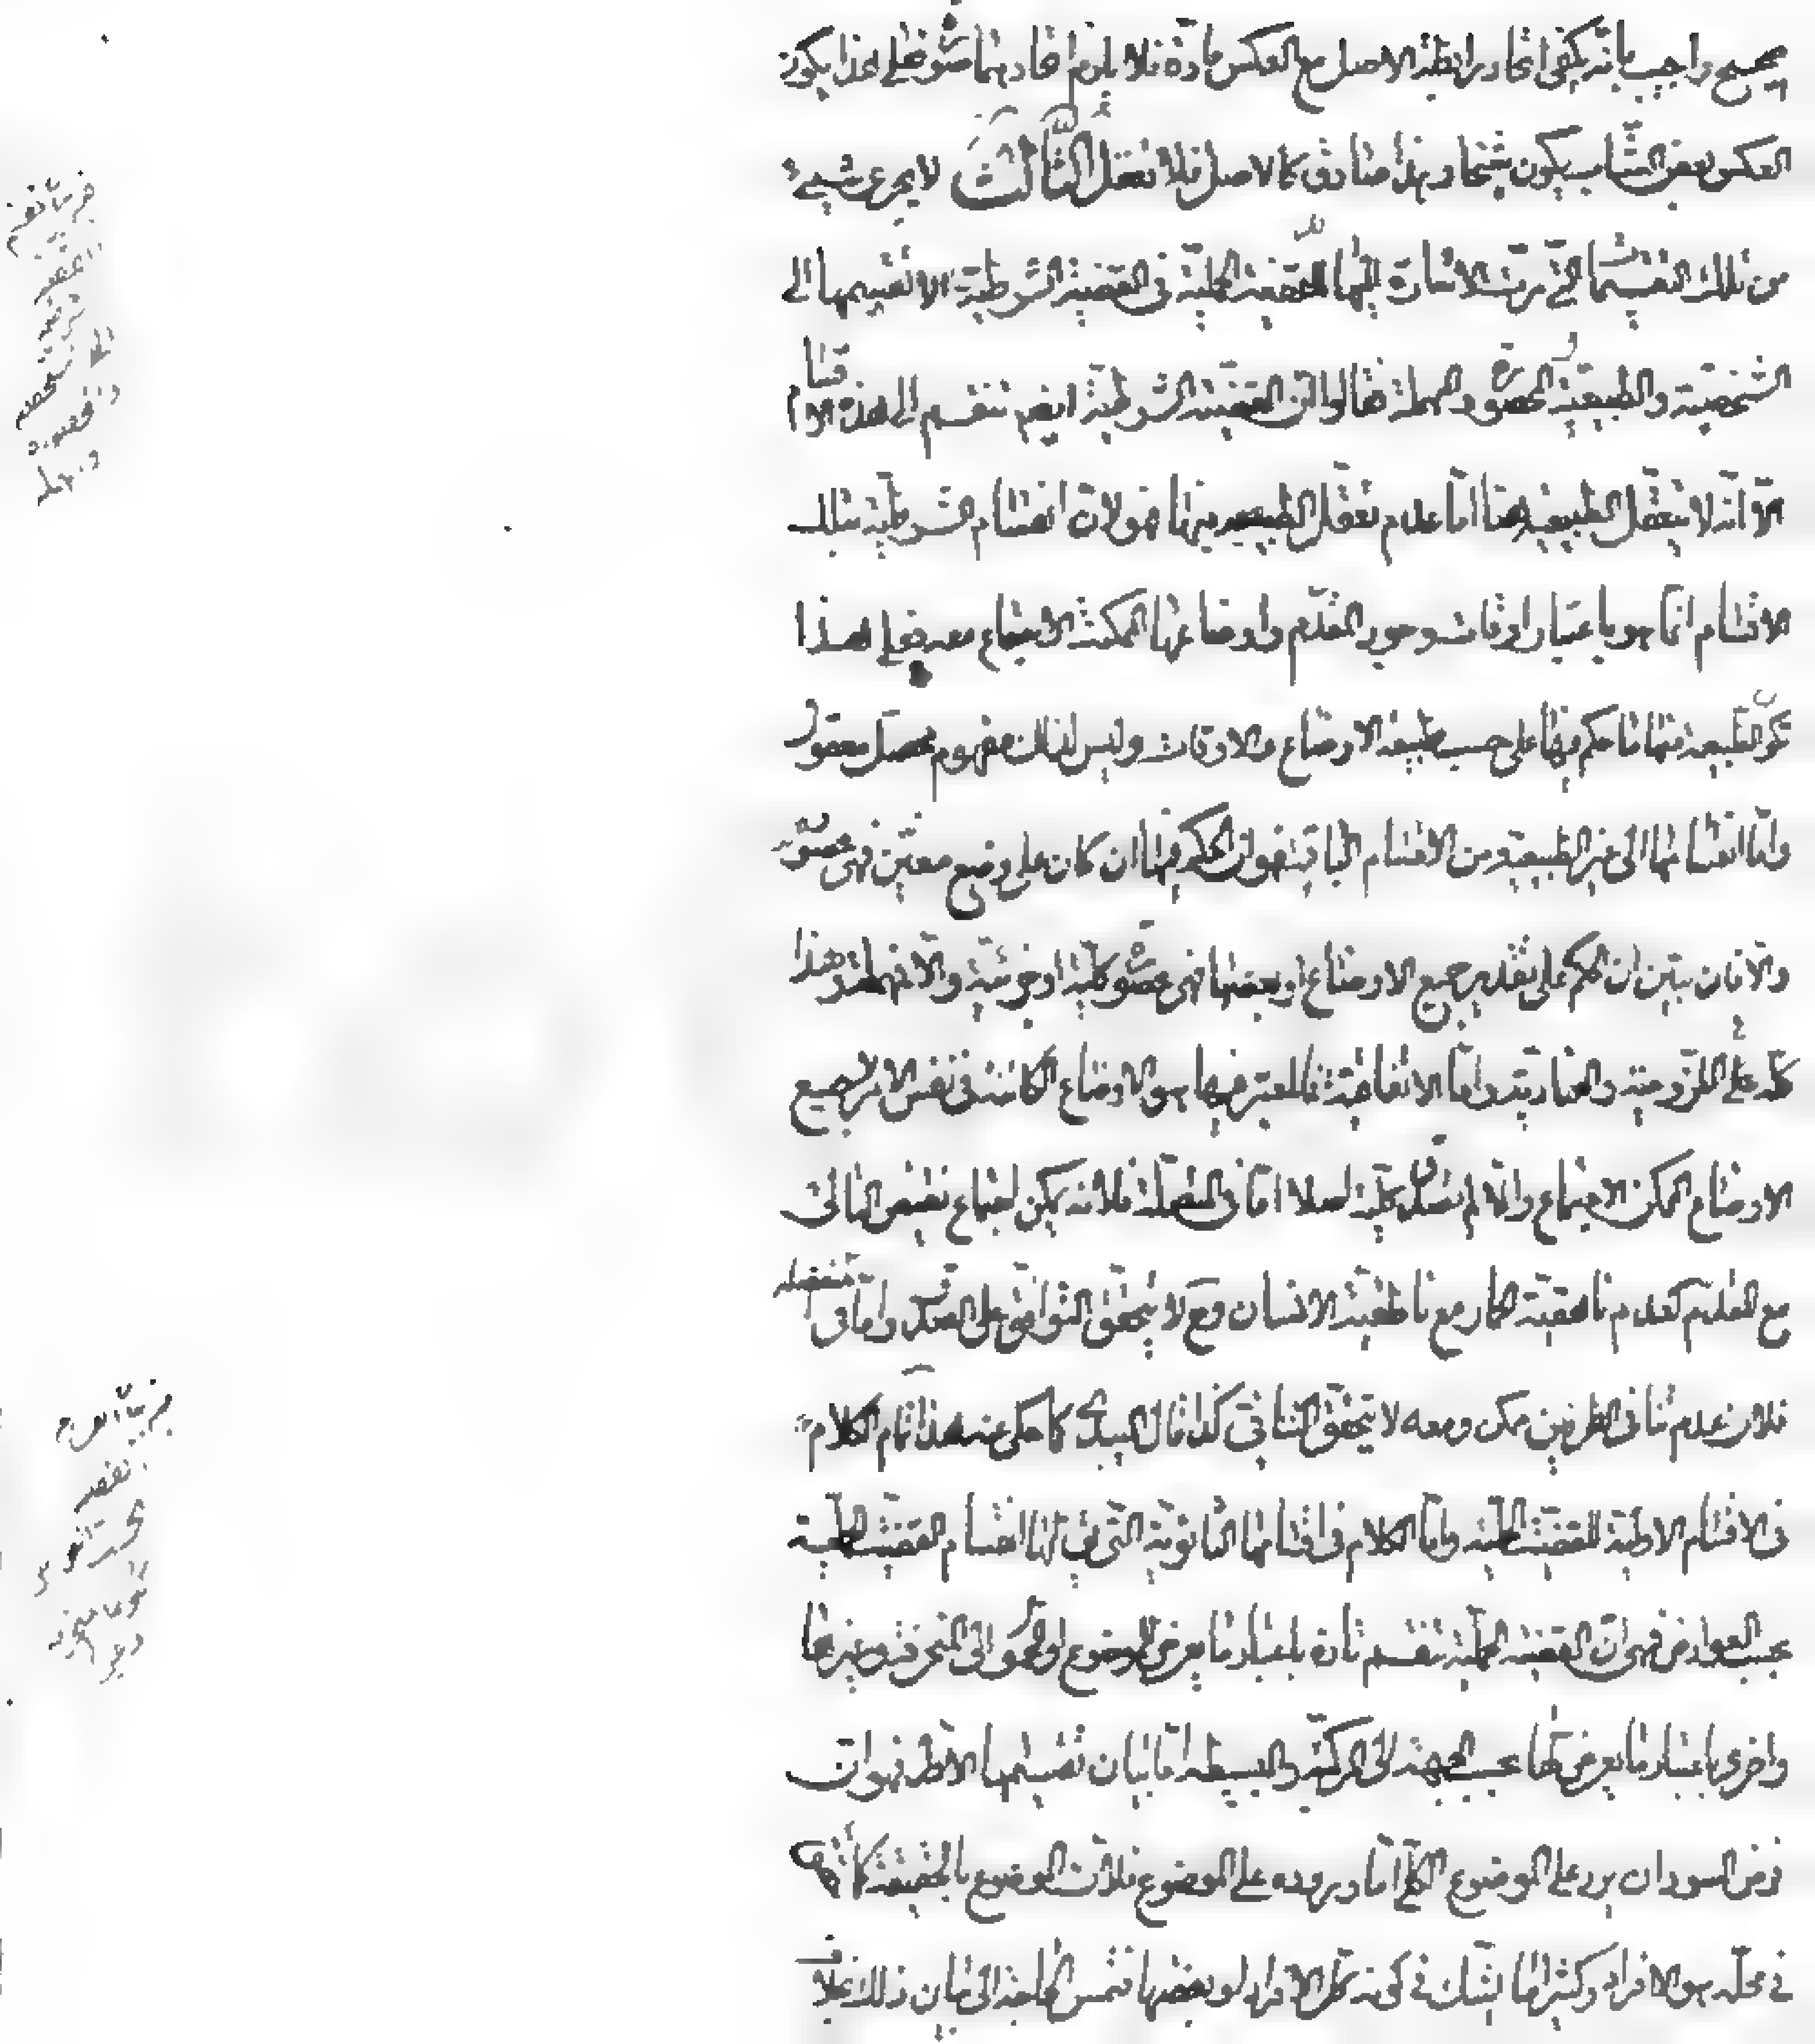 صحيح واجيب بانه يكفي اتحاد رابطة الاصل مع العكس مادة فلا يلزم اتحادهما صورة فعلى هذا يكون
العكس بعض الشاب يكون شيخا وهذا صادق كالاصل فلا تغفل الثالث لا يجرى شيئ
من تلك التقسيمات التي مرت الاشارة اليها للقضية الحملية في القضية الشرطية الا تقسيمها الى
الشخصية والطبيعية والمحصورة والمهملة فقالوا ان القضية الشرطية ايضم تنقسم الى هذه الاقسام
الا انه لا يتعقل الطبيعية هنا اما عدم تعقل الطبيعية فيها فهو لان انقسام الشرطية بتلك
الاقسام انما هو باعتبار اوقات وجود المقدم واوضاعها الممكنة الاجتماع معه فعلى هذا
تكون الطبيعية منها ما حكم فيها على حسب طبيعة الاوضاع والاوقات وليس لذلك مفهوم محصل معقول
واما انقسامها الى غير الطبيعية من الاقسام الباقية فهو ان الحكم فيها ان كان على وضع معين فهي مخصوصة
والا فان بين ان الحكم على تقدير جميع الاوضاع او بعضها فهي محصورة كلية او جزئية والا فمهملة وهذا
كله في اللزومية والعنادية واما الاتفاقية فالمعتبر فيها هو الاوضاع الكائنة في نفس الامر لا جميع
الاوضاع الممكن الاجتماع والا لم تصدق كلية اصلا اما في المتصلة فلانه يمكن اجتماع نقيض التالى
مع المقدم كعدم ناهقية الحمار مع ناطقية الانسان ومع لا يتحقق التوافق على الصدق واما في المنفصلة
فلان عدم تنافى الطرفين ممكن ومعه لا يتحقق التنافى كذا قال السيد كما حكى عنه هذا تمام الكلام
في الاقسام الاولية للقضية الحملية واما الكلام في اقسامها الثانوية التي يق لها انقسام القضية الحملية
بحسب العوارض فهي ان القضية الحملية تنقسم تارة باعتبار ما يعرض الموضوع او المحمول الى المنحرفة وغيرها
واخرى باعتبار ما يعرض لها بحسب الجهة الى المركبة والبسيطة اما بيان تقسيمها الاول فهو ان
فرض السور ان يرد على الموضوع الكلي اما وروده على الموضوع فلان الموضوع بالحقيقة كما
في محله هو الافراد وكثيرا ما يشك في كونه كل الافراد او بعضها فتمس الحاجة الى بيان ذلك بخلاف